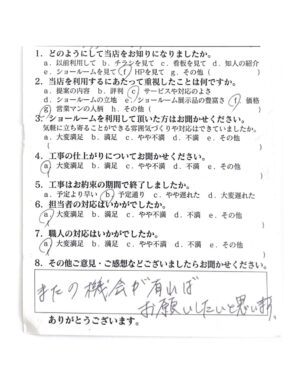 1. どのようにして当店をお知りになりましたか。
a. 以前利用して b. チラシを見て c. 看板を見て d. 知人の紹介
e. ショールームを見て f. HPを見て g. その他（ ）
2. 当店を利用するにあたって重視したことは何ですか。
a. 提案の内容 b. 評判 c. サービスや対応のよさ
d. ショールームの立地 e. ショールーム展示品の豊富さ f. 価格
g. 営業マンの人柄 h. その他（ ）
3. ショールームを利用して頂いた方はお聞かせください。
気軽に立ち寄ることができる雰囲気づくりや対応はできていましたか。
a. 大変満足 b. 満足 c. やや不満 d. 不満 e. その他
4. 工事の仕上がりについてお聞かせください。
a. 大変満足 b. 満足 c. やや不満 d. 不満 e. その他
5. 工事はお約束の期間で終了しましたか。
a. 予定より早い b. 予定通り c. やや遅れた d. 大変遅れた
6. 担当者の対応はいかがでしたか。
a. 大変満足 b. 満足 c. やや不満 d. 不満 e. その他
7. 職人の対応はいかがでしたか。
a. 大変満足 b. 満足 c. やや不満 d. 不満 e. その他
8. その他ご意見・ご感想などございましたらお聞かせください。
またの機会が有れば
お願いしたいと思います。
ありがとうございます。